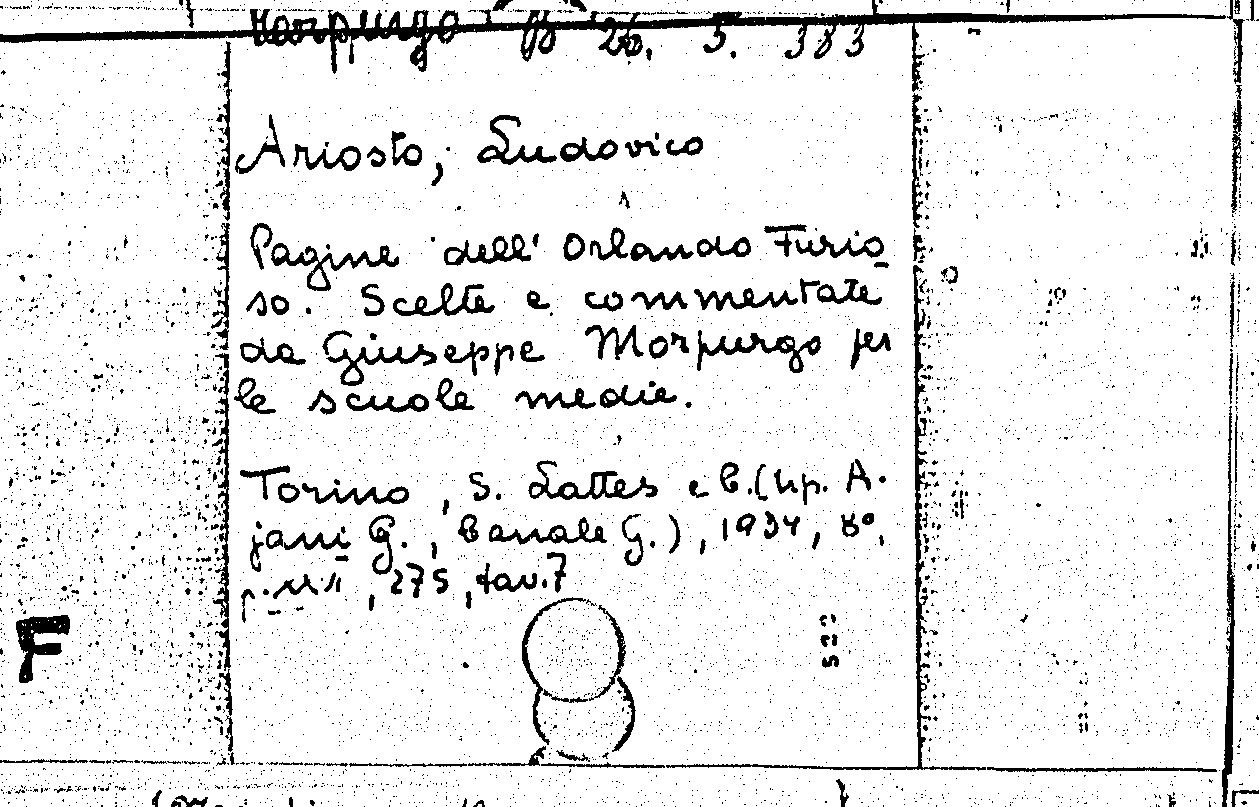 Morpurgo B 26. 5. 383
Ariosto, Ludovico
Pagine dell' Orlando Furio
so. Scelte e commentate
da Giuseppe Morpurgo per
le scuole medie.
Torino, S. Lattes e C. (tip. A.
jani G., Canale G.), 1934, 8º,
p. , 275, tav. 7
F
522